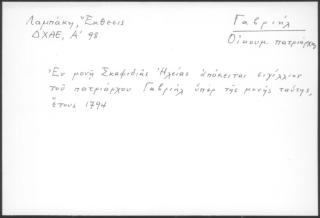 Λαμπάκη, Ἔκθεσις
ΔΧΑΕ, Α' 98
Γαβριήλ
Οἰκουμ. πατριάρχης
Ἐν μονῇ Σκαφιδιᾶς Ἠλείας ἀπόκειται σιγίλλιον
τοῦ πατριάρχου Γαβριήλ ὑπὲρ τῆς μονῆς ταύτης,
ἔτους 1794